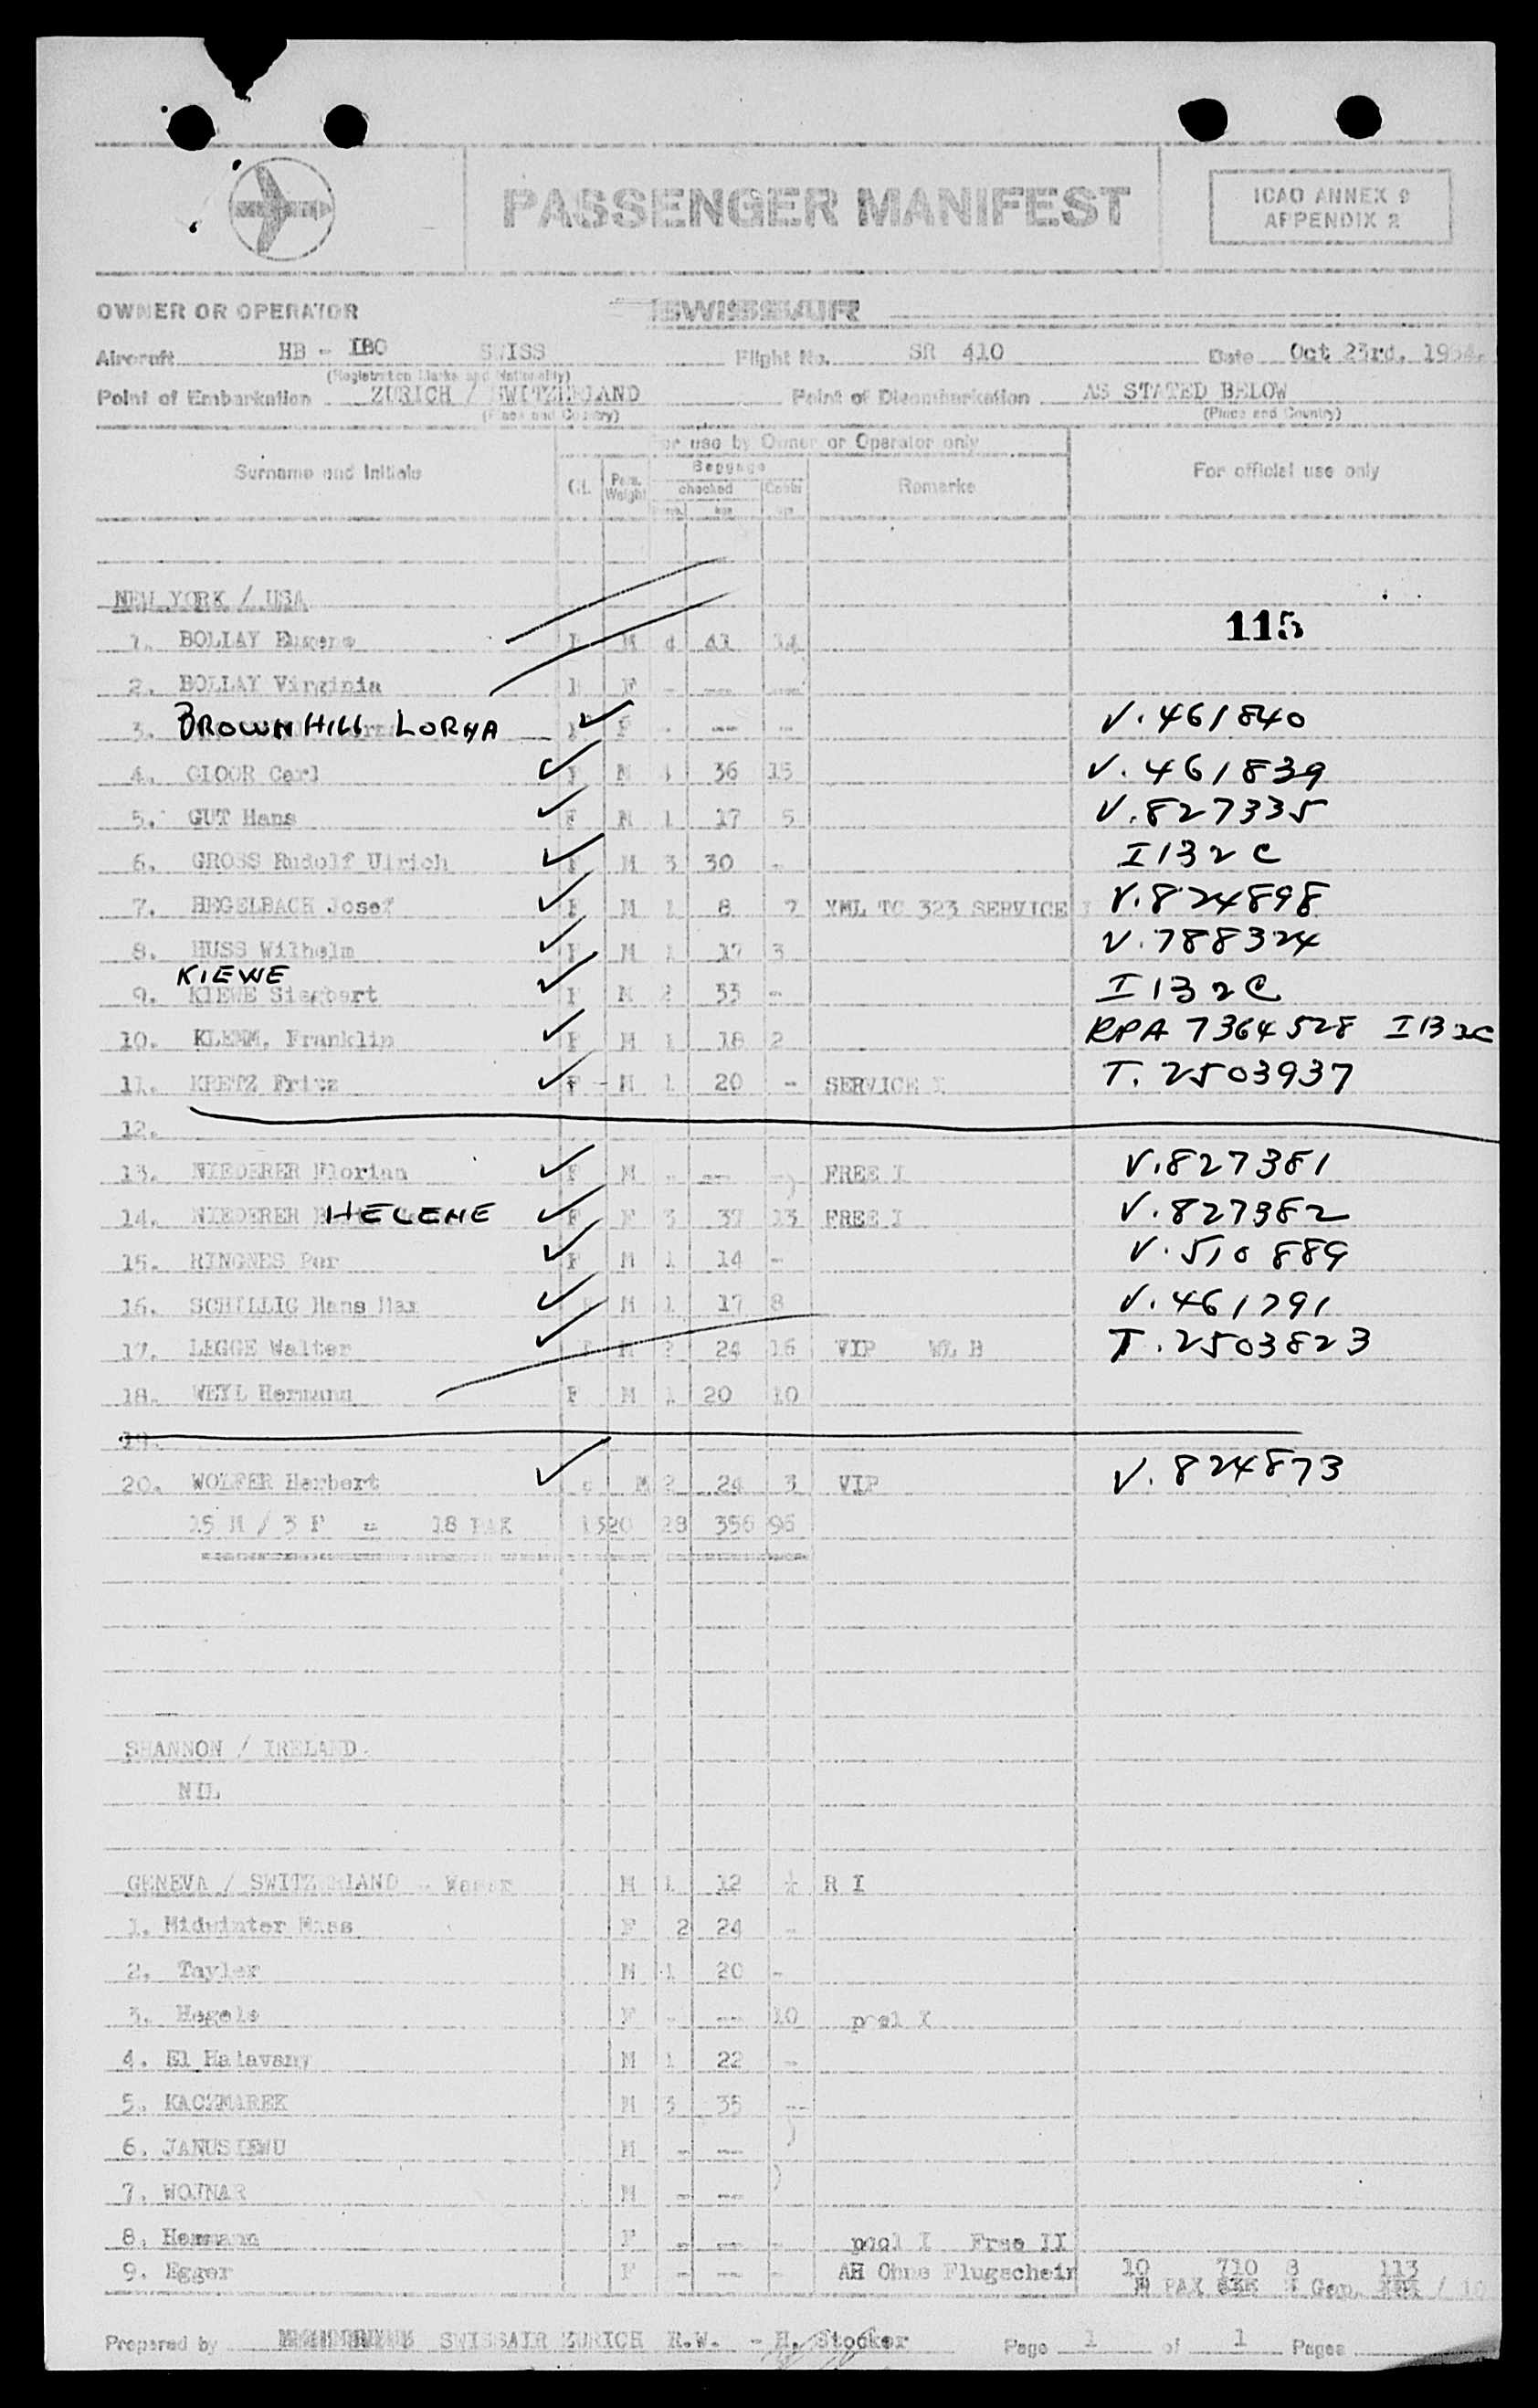 PASSENGER MANIFEST
ICAO ANNEX 9
APPENDIX 2
OWNER OR OPERATOR SWISSAIR
Aircraft HB - IBO SWISS Flight No. SR 410 Date Oct 23rd, 1954.
(Registration Marks and Nationality)
Point of Embarkation ZURICH / SWITZERLAND Point of Disembarkation AS STATED BELOW
(Place and Country) (Place and Country)
For use by Owner or Operator only
Surname and Initials Cl. Pass. Weight Baggage checked Cabin Remarks For official use only
kgs kgs
NEW YORK / USA
115
1. BOLLAY Eugene F M 4 41 14
2. BOLLAY Virginia F F - --- ---
3. BROWNHILL LORNA F F - --- - V. 461840
4. GLOOR Carl F M 1 36 15 V. 461839
5. GUT Hans F M 1 17 5 V. 827335
6. GROSS Rudolf Ulrich F M 3 30 - I 132 C
7. HEGELBACH Josef F M 1 8 7 XML TC 323 SERVICE I V. 824898
8. HUSS Wilhelm F M 1 17 3 V. 788324
KIEWE
9. KIEWE Siegbert F M 2 53 - I 132 C
10. KLEMM, Franklin F M 1 18 2 RPA 7364528 I 132C
11. KRETZ Fritz F - M 1 20 - SERVICE I T. 2503937
12.
13. NIEDERER Florian F M - --- -) FREE I V. 827381
14. NIEDERER HELENE F F 3 37 13 FREE I V. 827382
15. RINGNES Per F M 1 14 - V. 510889
16. SCHILLIG Hans Max M 1 17 8 V. 461791
17. LEGGE Walter F M 2 24 16 VIP WL B T. 2503823
18. WEYL Hermann F M 1 20 10
19.
20. WOLFER Herbert M 2 24 3 VIP V. 824873
15 M / 3 F = 18 PAX 1520 28 356 96
SHANNON / IRELAND.
NIL
GENEVA / SWITZERLAND M 1 12 R I
1. Midwinter Miss F 2 24 -
2. Tayler M 1 20 -
3. Hegels F - --- 10 pool I
4. El Halavany M 1 22 -
5. KACZMAREK M 3 35 --
6. JANUSIEWU M - --- )
7. WOJNAR M - --- )
8. Hermann F - --- - pool I Free II
9. Egger F - --- - AH Ohne Flugschein 10 710 8 113
PAX Gep. / 10
Prepared by SWISSAIR ZURICH R.W. - H. Stocker Page 1 of 1 Pages